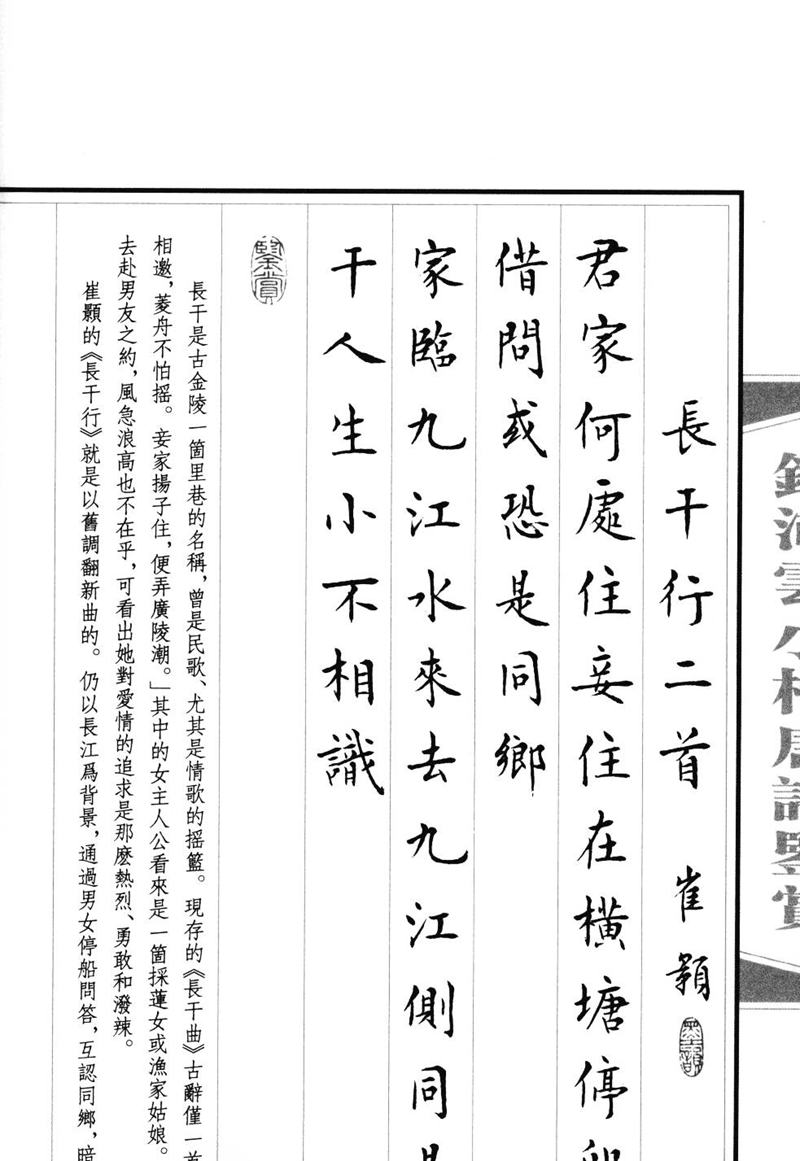 錢沛雲小楷唐詩鑒賞
長干行二首 崔顥
君家何處住妾住在橫塘停
借問或恐是同鄉
家臨九江水來去九江側同
干人生小不相識
鑒賞
長干是古金陵一箇里巷的名稱，曾是民歌、尤其是情歌的摇籃。現存的《長干曲》古辭僅一首
相邀，菱舟不怕摇。妾家揚子住，便弄廣陵潮。」其中的女主人公看來是一箇採蓮女或漁家姑娘。
去赴男友之約，風急浪高也不在乎，可看出她對愛情的追求是那麽熱烈、勇敢和潑辣。
崔顥的《長干行》就是以舊調翻新曲的。仍以長江爲背景，通過男女停船問答，互認同鄉，暗